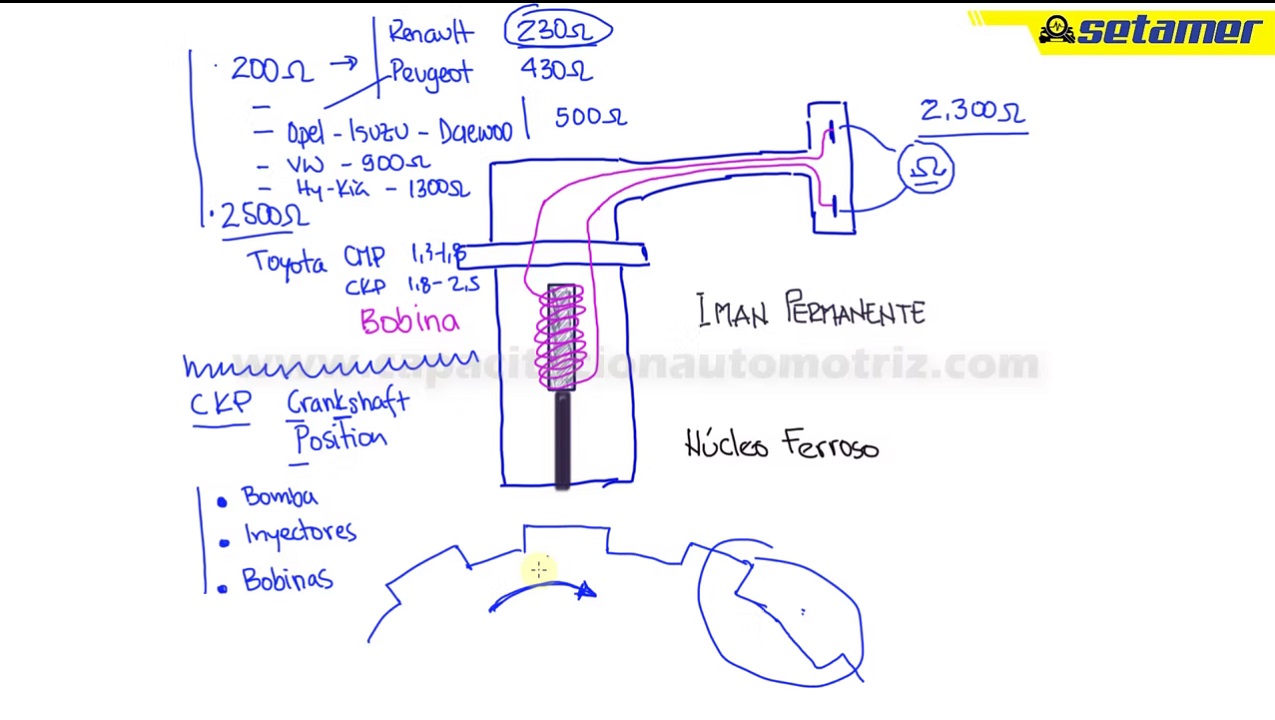 setamer
Renault 230Ω
· 200Ω → Peugeot 430Ω
– Opel - Isuzu - Daewoo 500Ω
– VW - 900Ω
– Hy-Kia - 1300Ω
· 2500Ω
Toyota CMP 1,3-1,8
CKP 1,8-2,5
Bobina
2.300Ω
Ω
IMAN PERMANENTE
www.capacitacionautomotriz.com
CKP Crankshaft
Position
Núcleo Ferroso
• Bomba
• Inyectores
• Bobinas